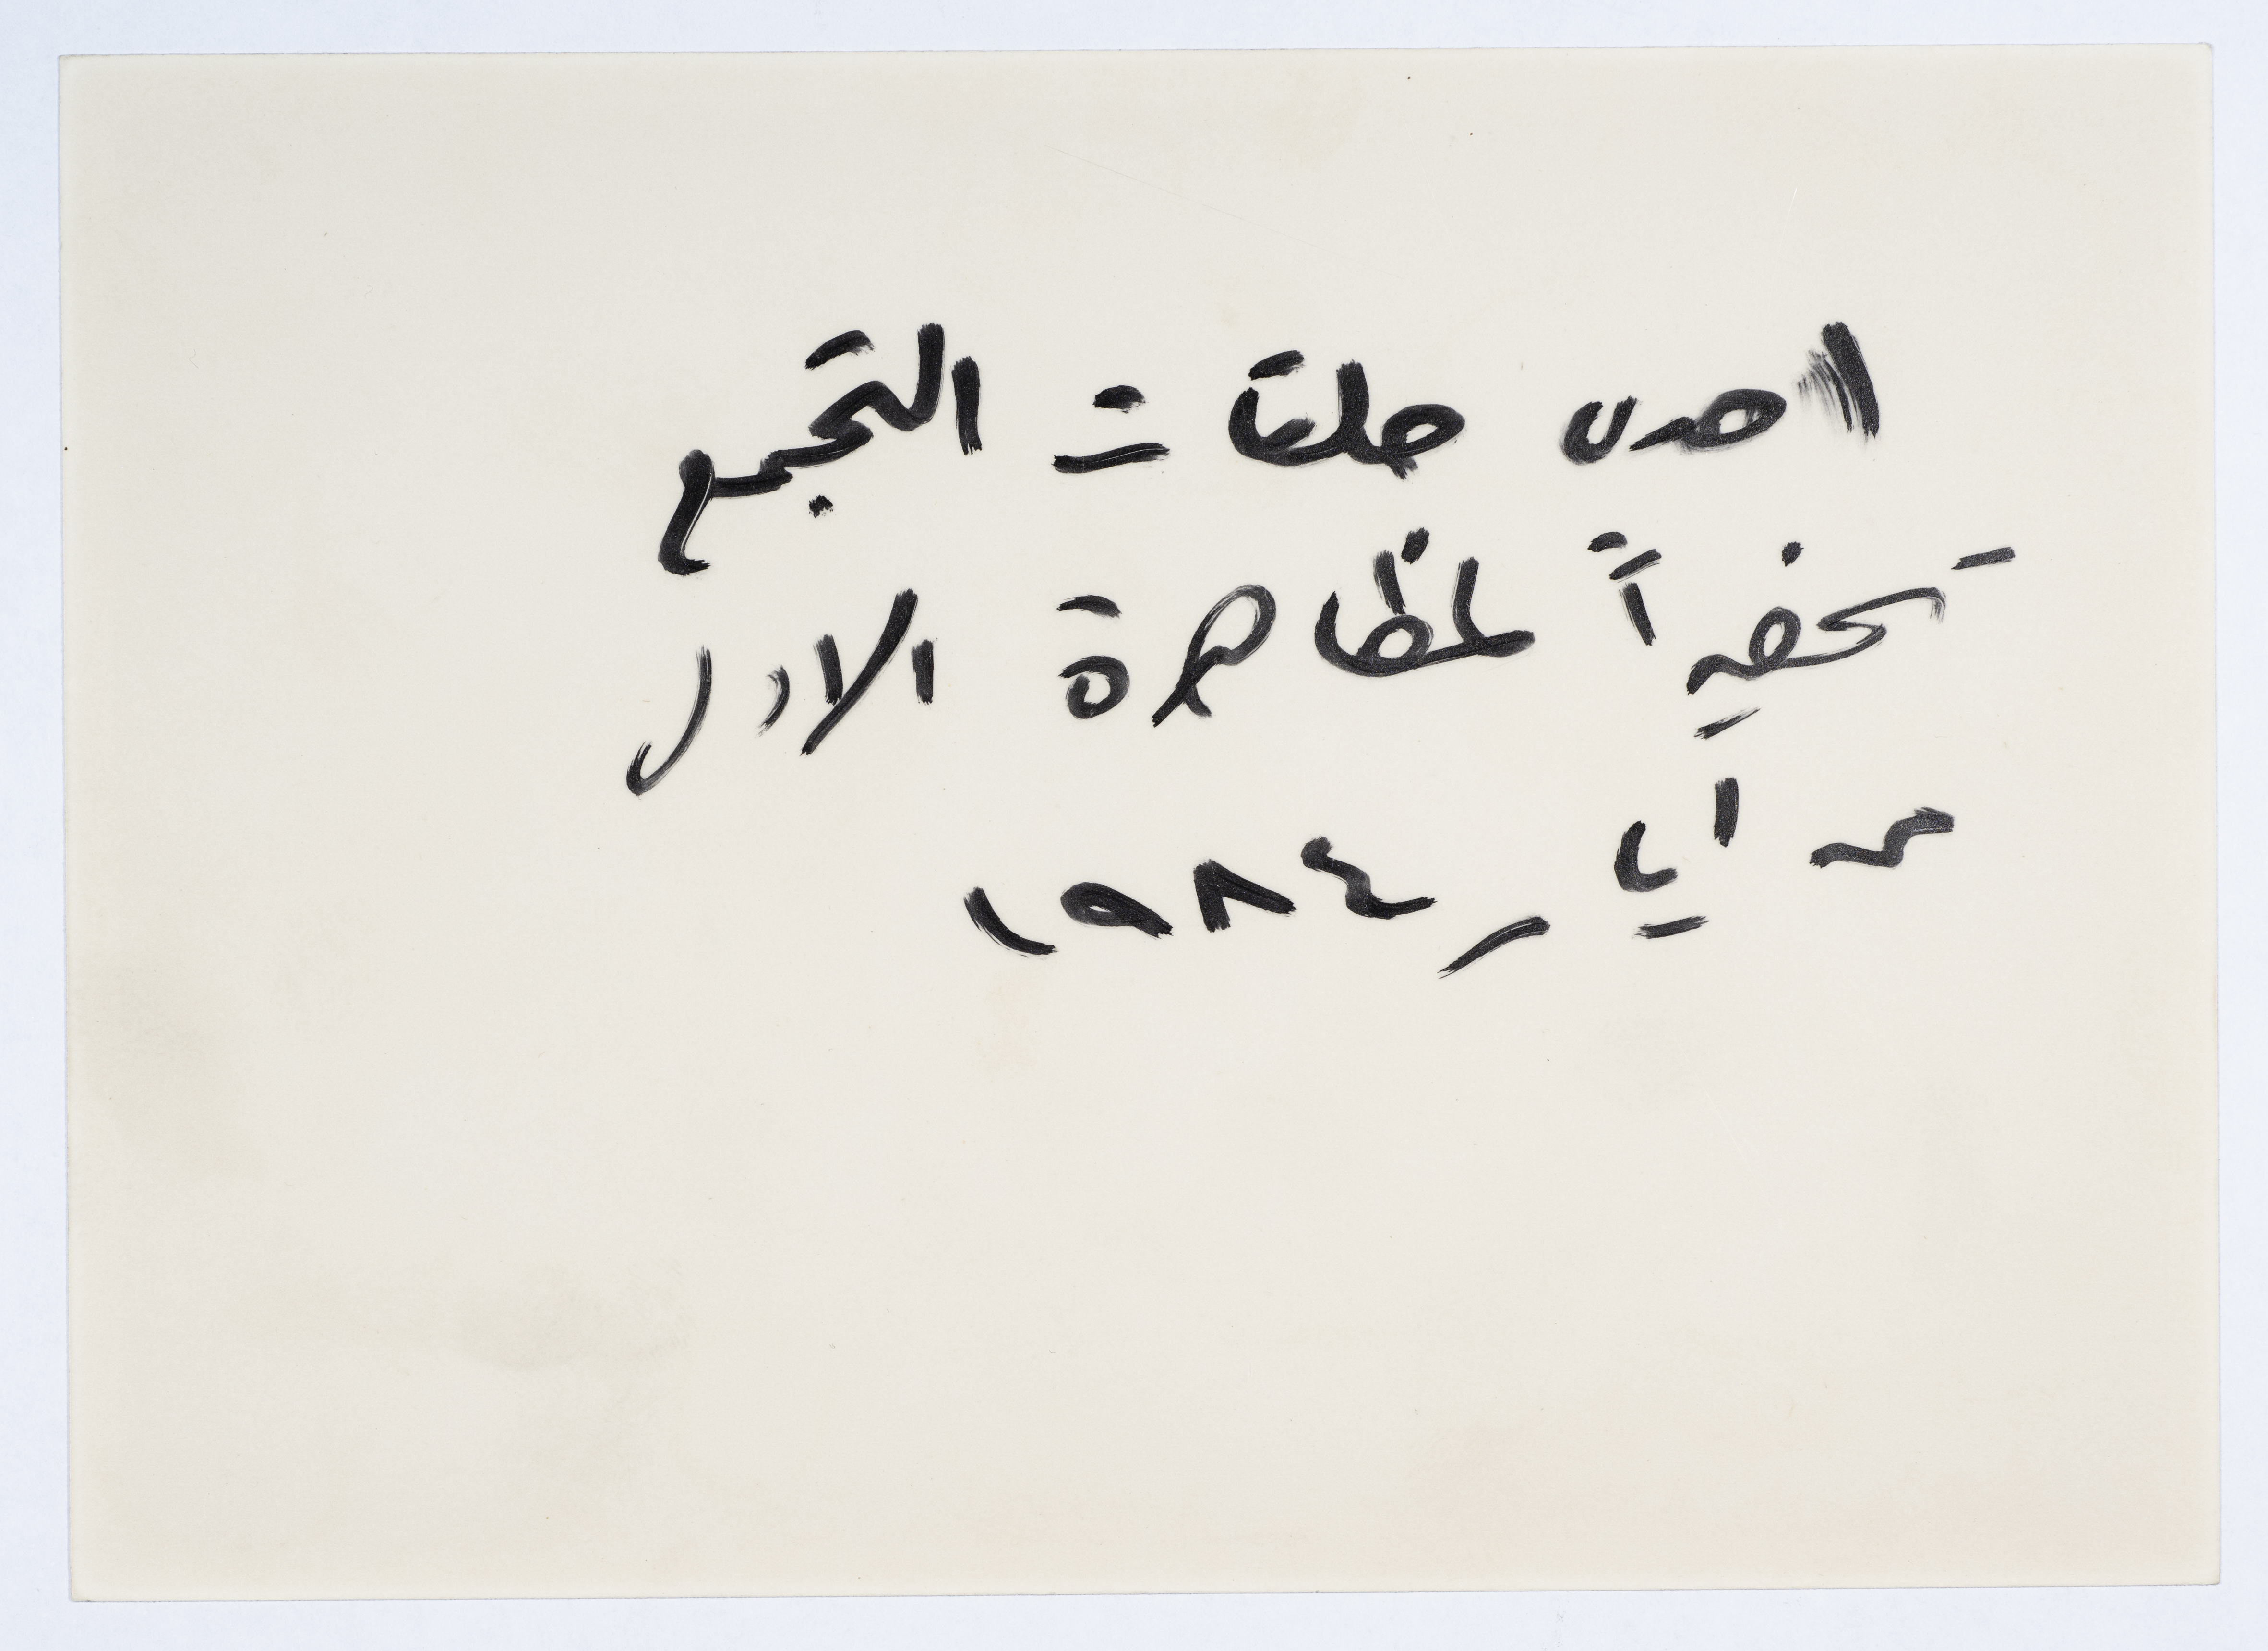 احدى حلقات التجمع
تحضيراً لمظاهرة الاول
من ايار ١٩٨٤